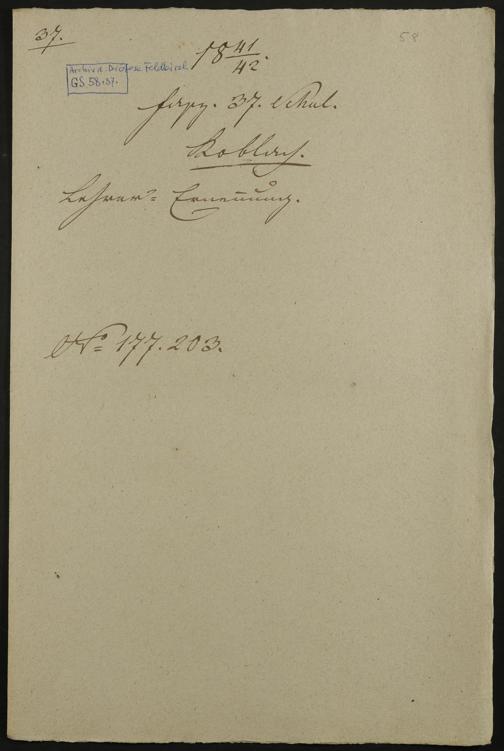 37.
58
18 41/42.
Archiv d. Diözese Feldkirch
GS 58.37.
Fasz. 37. Schul.
Koblach.
Lehrer= Ernennung.
No 177. 203.